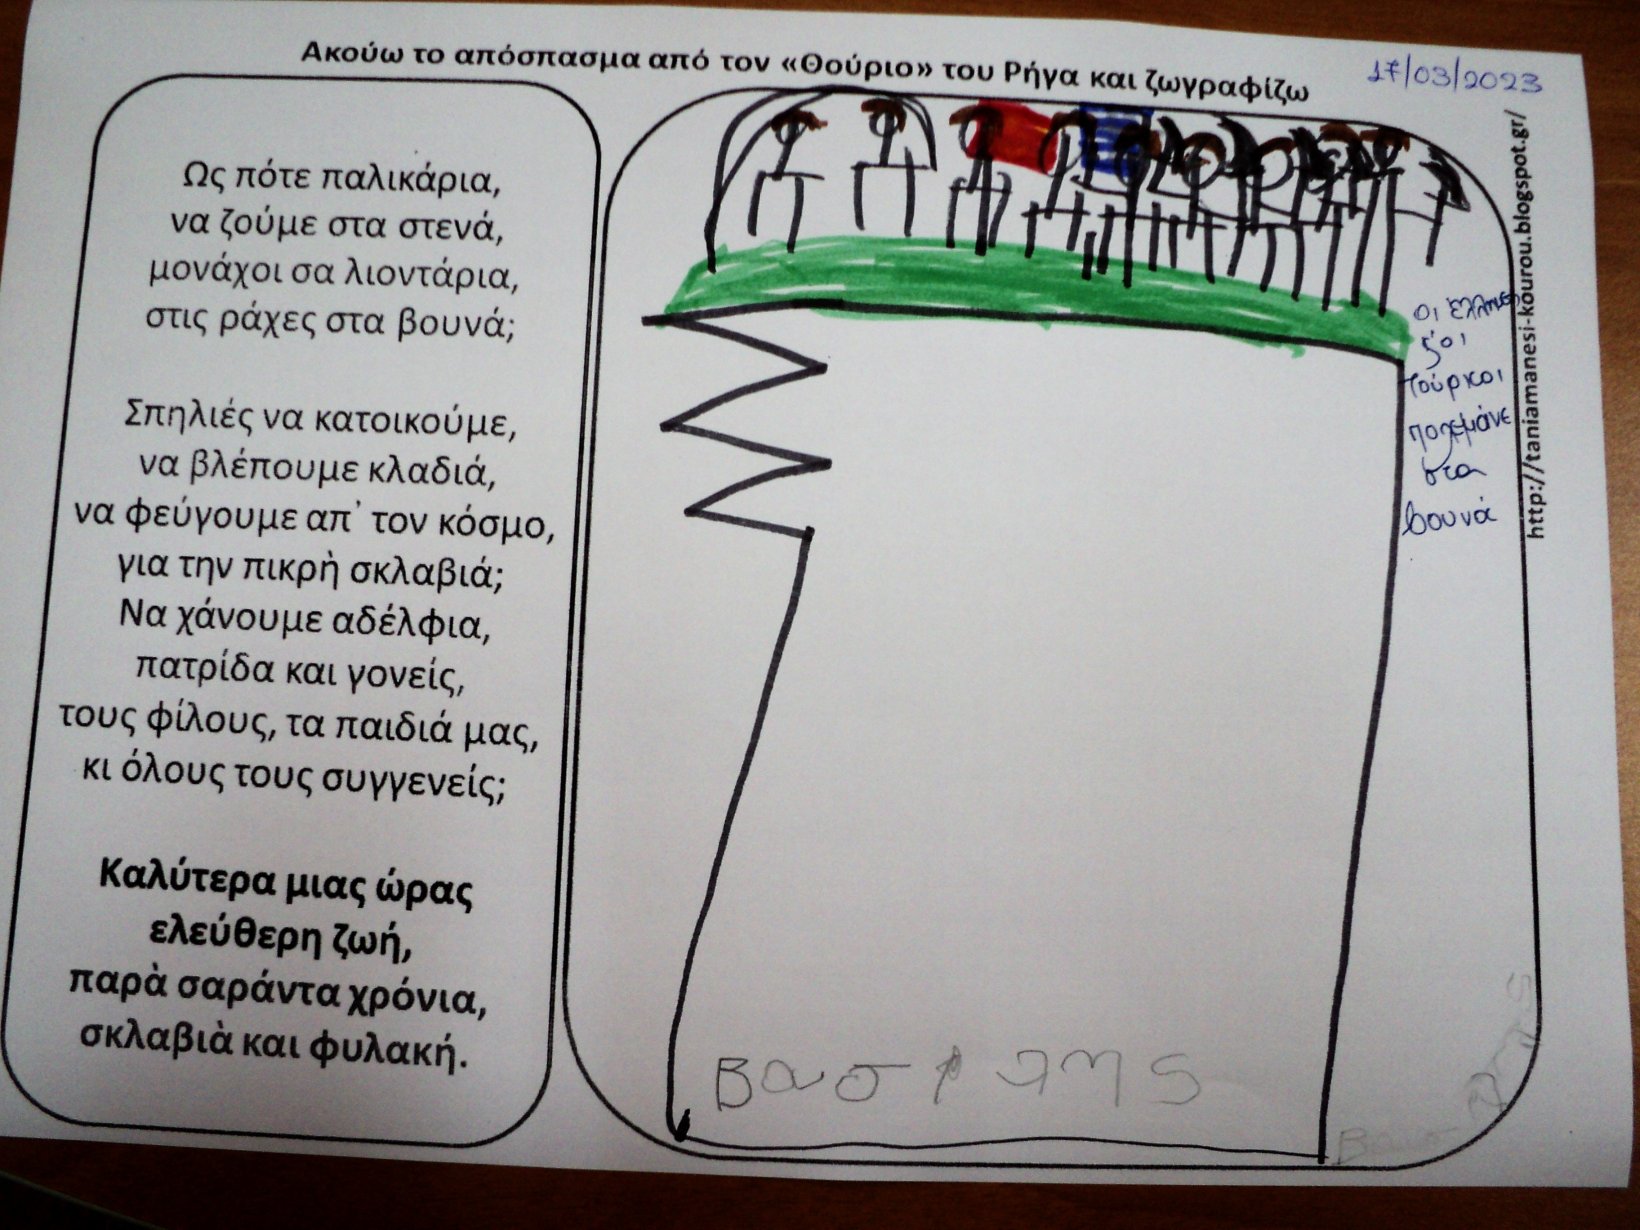 Ακούω το απόσπασμα από τον «Θούριο» του Ρήγα και ζωγραφίζω
17/03/2023
Ως πότε παλικάρια,
να ζούμε στα στενά,
μονάχοι σα λιοντάρια,
στις ράχες στα βουνά;
Σπηλιές να κατοικούμε,
να βλέπουμε κλαδιά,
να φεύγουμε απ᾿ τον κόσμο,
για την πικρὴ σκλαβιά;
Να χάνουμε αδέλφια,
πατρίδα και γονείς,
τους φίλους, τα παιδιά μας,
κι όλους τους συγγενείς;
Καλύτερα μιας ώρας
ελεύθερη ζωή,
παρὰ σαράντα χρόνια,
σκλαβιὰ και φυλακή.
οι Έλληνες
ς' οι
Τούρκοι
πολεμάνε
στα
βουνά
http://taniamanesi-kourou.blogspot.gr/
Βασιλης